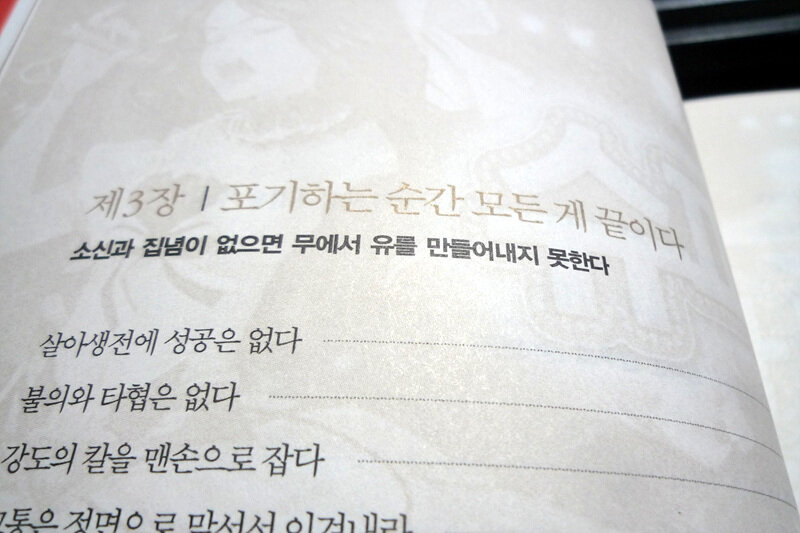 제3장 | 포기하는 순간 모든 게 끝이다
소신과 집념이 없으면 무에서 유를 만들어내지 못한다
살아생전에 성공은 없다
불의와 타협은 없다
강도의 칼을 맨손으로 잡다
정면으로 맞서서 이겨내라